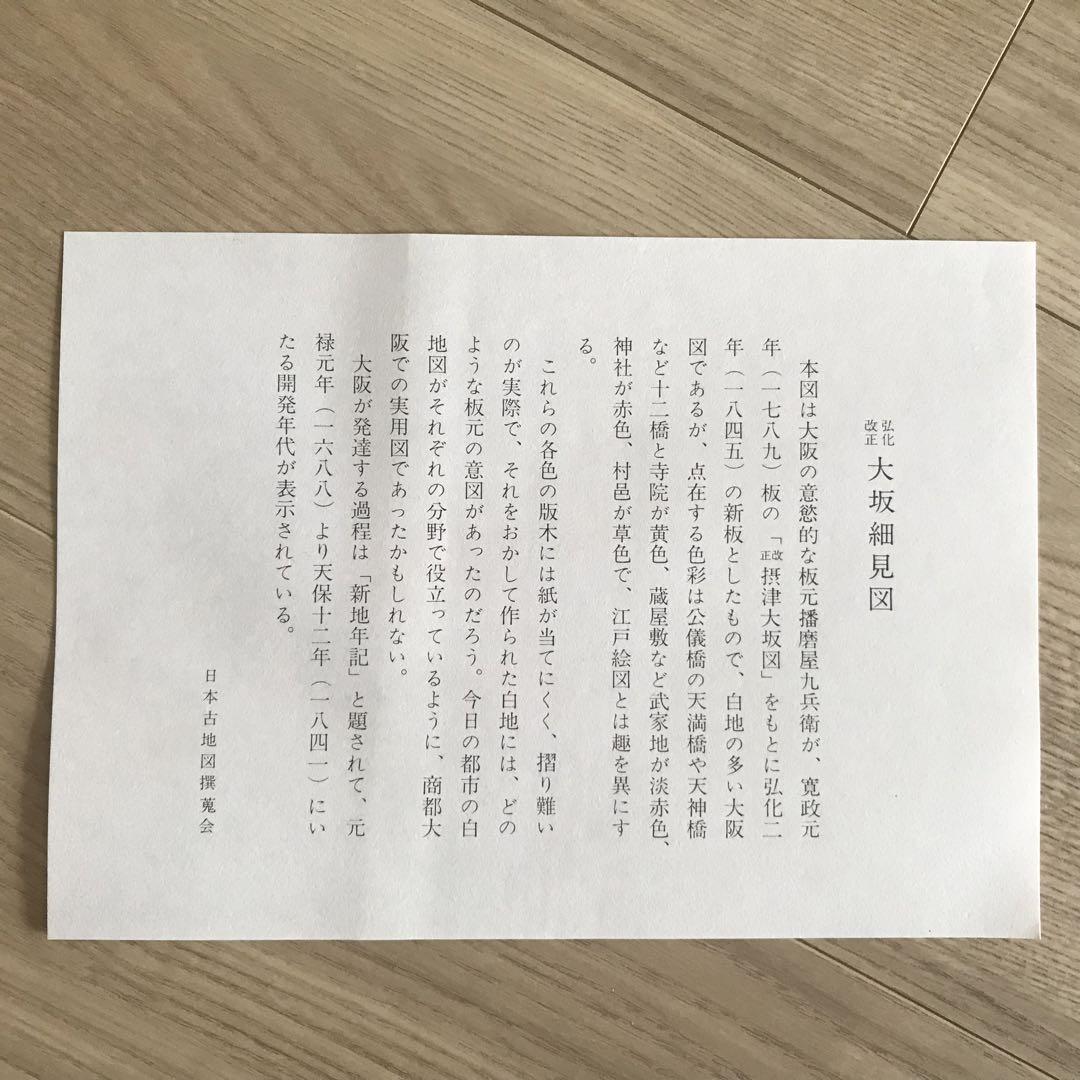 弘化改正 大坂細見図
本図は大阪の意慾的な板元播磨屋九兵衛が、寛政元
年（一七八九）板の「改正摂津大坂図」をもとに弘化二
年（一八四五）の新板としたもので、白地の多い大阪
図であるが、点在する色彩は公儀橋の天満橋や天神橋
など十二橋と寺院が黄色、蔵屋敷など武家地が淡赤色、
神社が赤色、村邑が草色で、江戸絵図とは趣を異にす
る。
これらの各色の版木には紙が当てにくく、摺り難い
のが実際で、それをおかして作られた白地には、どの
ような板元の意図があったのだろう。今日の都市の白
地図がそれぞれの分野で役立っているように、商都大
阪での実用図であったかもしれない。
大阪が発達する過程は「新地年記」と題されて、元
禄元年（一六八八）より天保十二年（一八四一）にい
たる開発年代が表示されている。
日本古地図撰蒐会